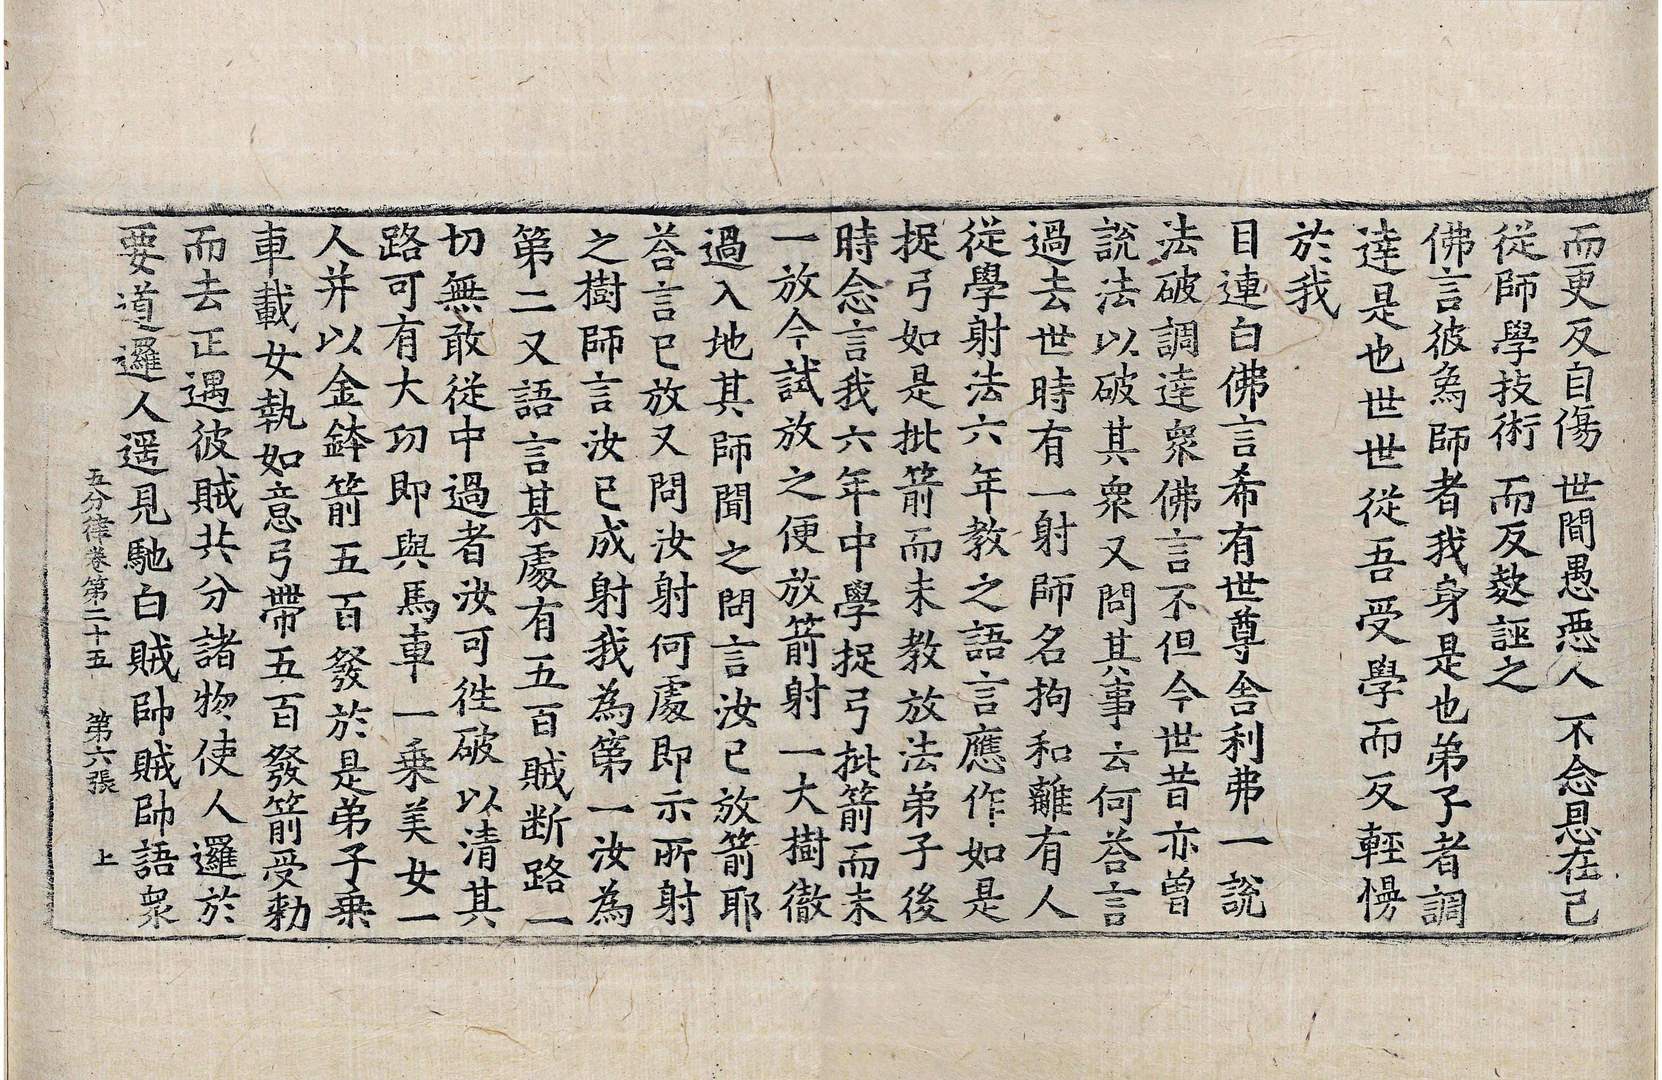 而更反自傷 世間愚惡人 不念恩在己
從師學技術 而反欺誣之
佛言彼為師者我身是也弟子者調
達是也世世從吾受學而反輕慢
於我
目連白佛言希有世尊舍利弗一說
法破調達衆佛言不但今世昔亦曾
說法以破其衆又問其事云何荅言
過去世時有一射師名拘和離有人
從學射法六年教之語言應作如是
捉弓如是批箭而未教放法弟子後
時念言我六年中學捉弓批箭而未
一放今試放之便放箭射一大樹徹
過入地其師聞之問言汝已放箭耶
荅言已放又問汝射何處即示所射
之樹師言汝已成射我為第一汝為
第二又語言某處有五百賊斷路一
切無敢從中過者汝可徃破以清其
路可有大功即與馬車一乗美女一
人并以金鉢箭五百發於是弟子乗
車載女執如意弓帶五百發箭受勑
而去正遇彼賊共分諸物使人邏於
要道邏人遥見馳白賊帥賊帥語衆
五分律卷第二十五 第六張 上